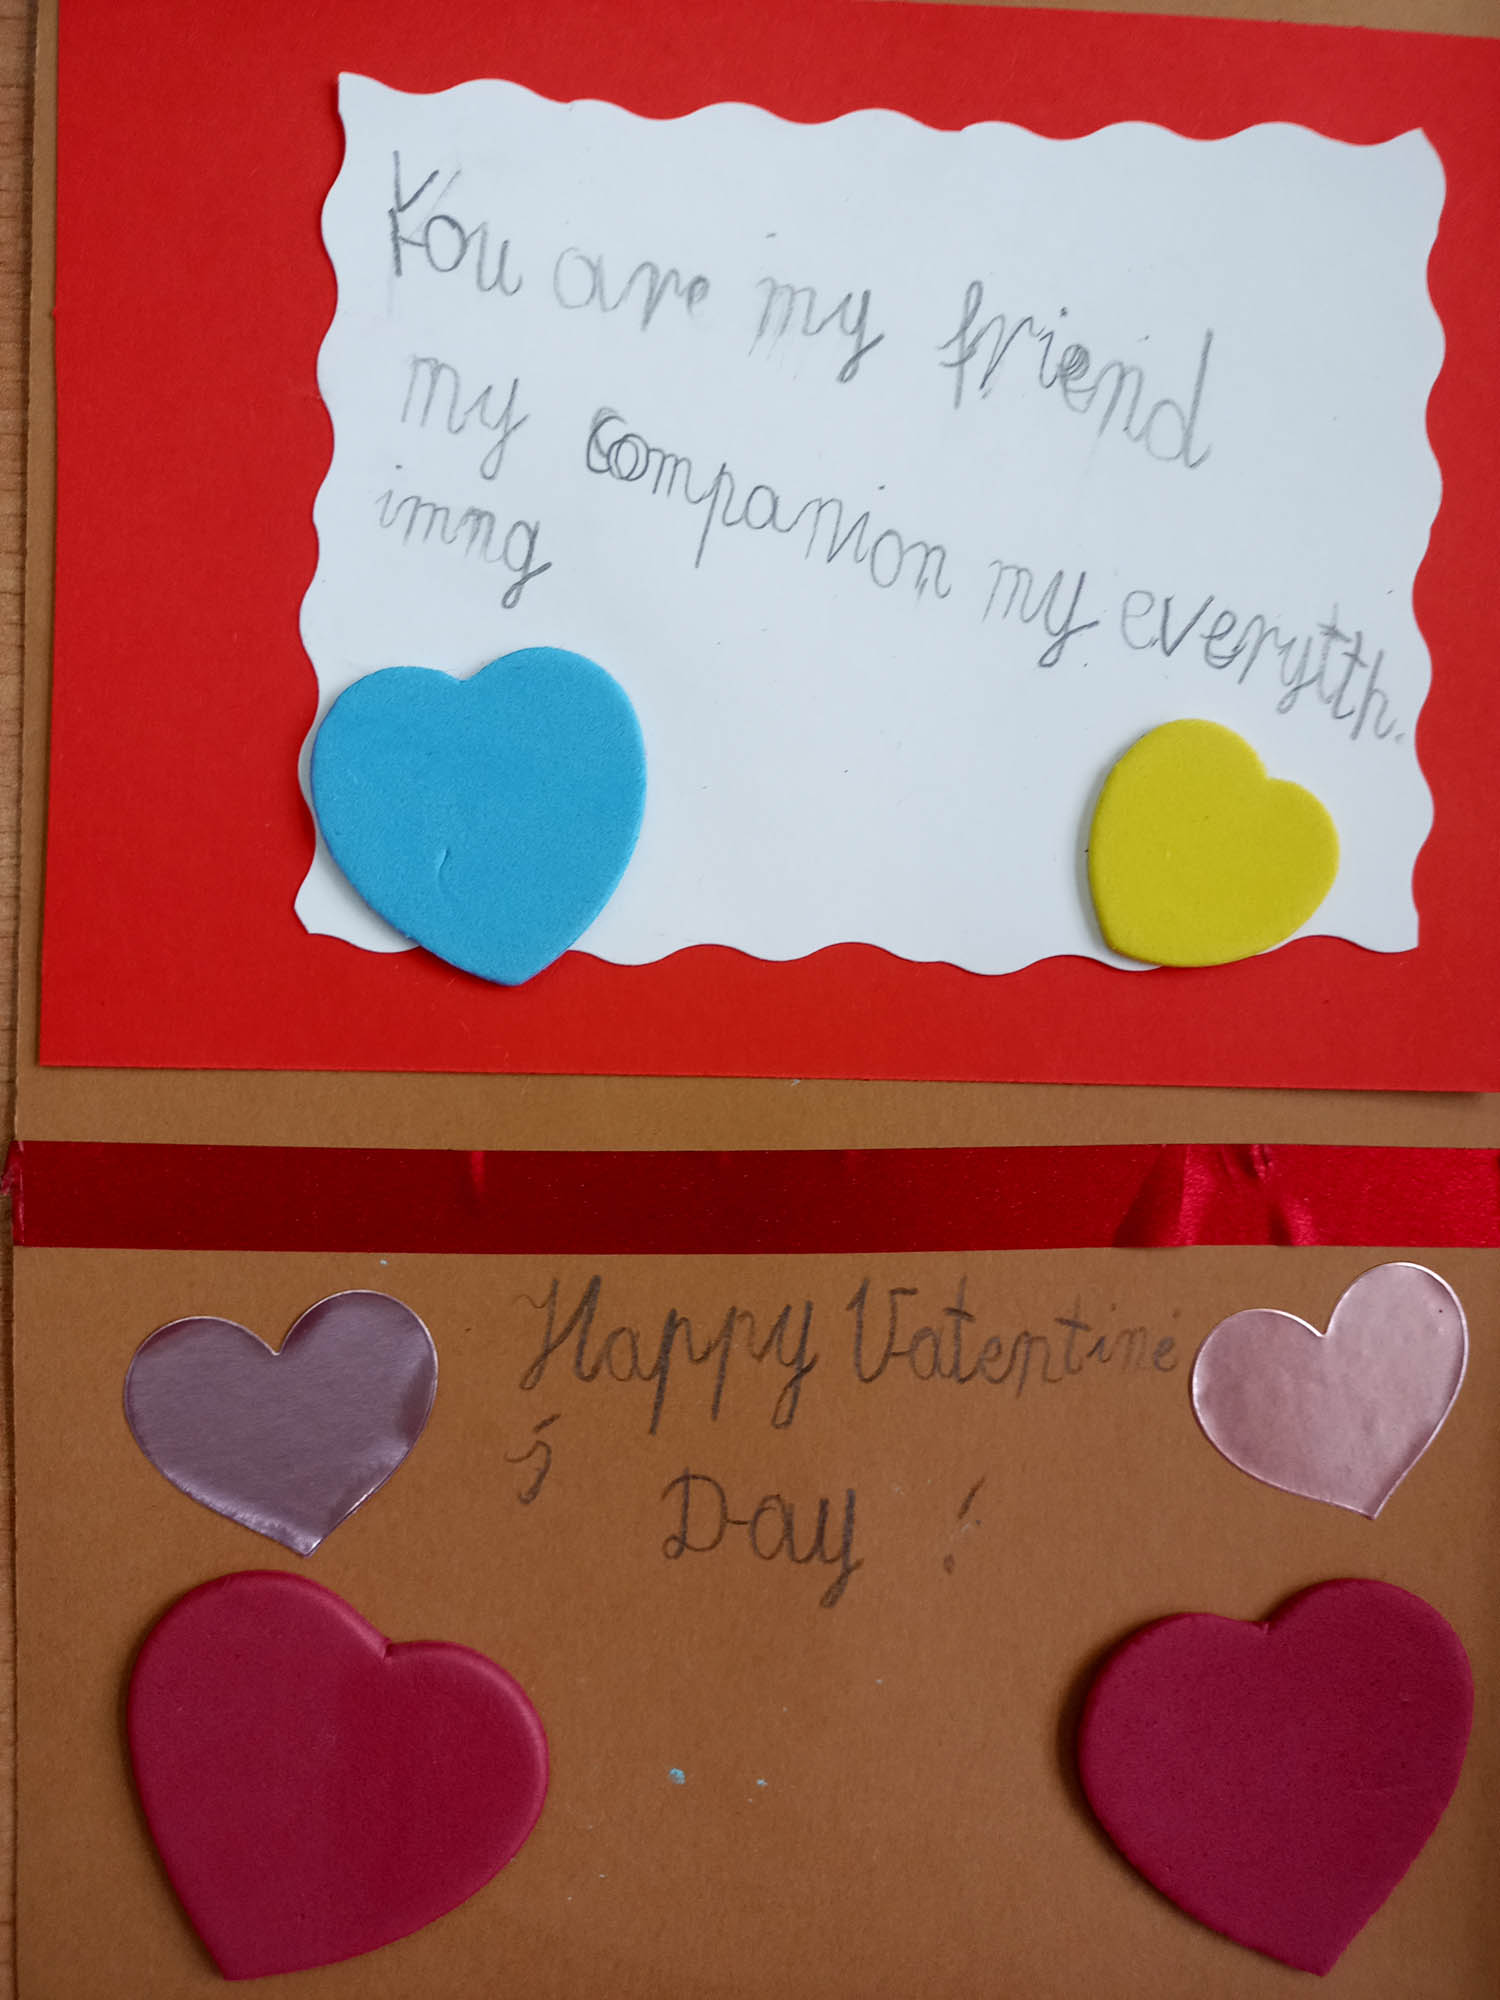 You are my friend
my companion my everytth.
imng
Happy Valentine
's
Day !